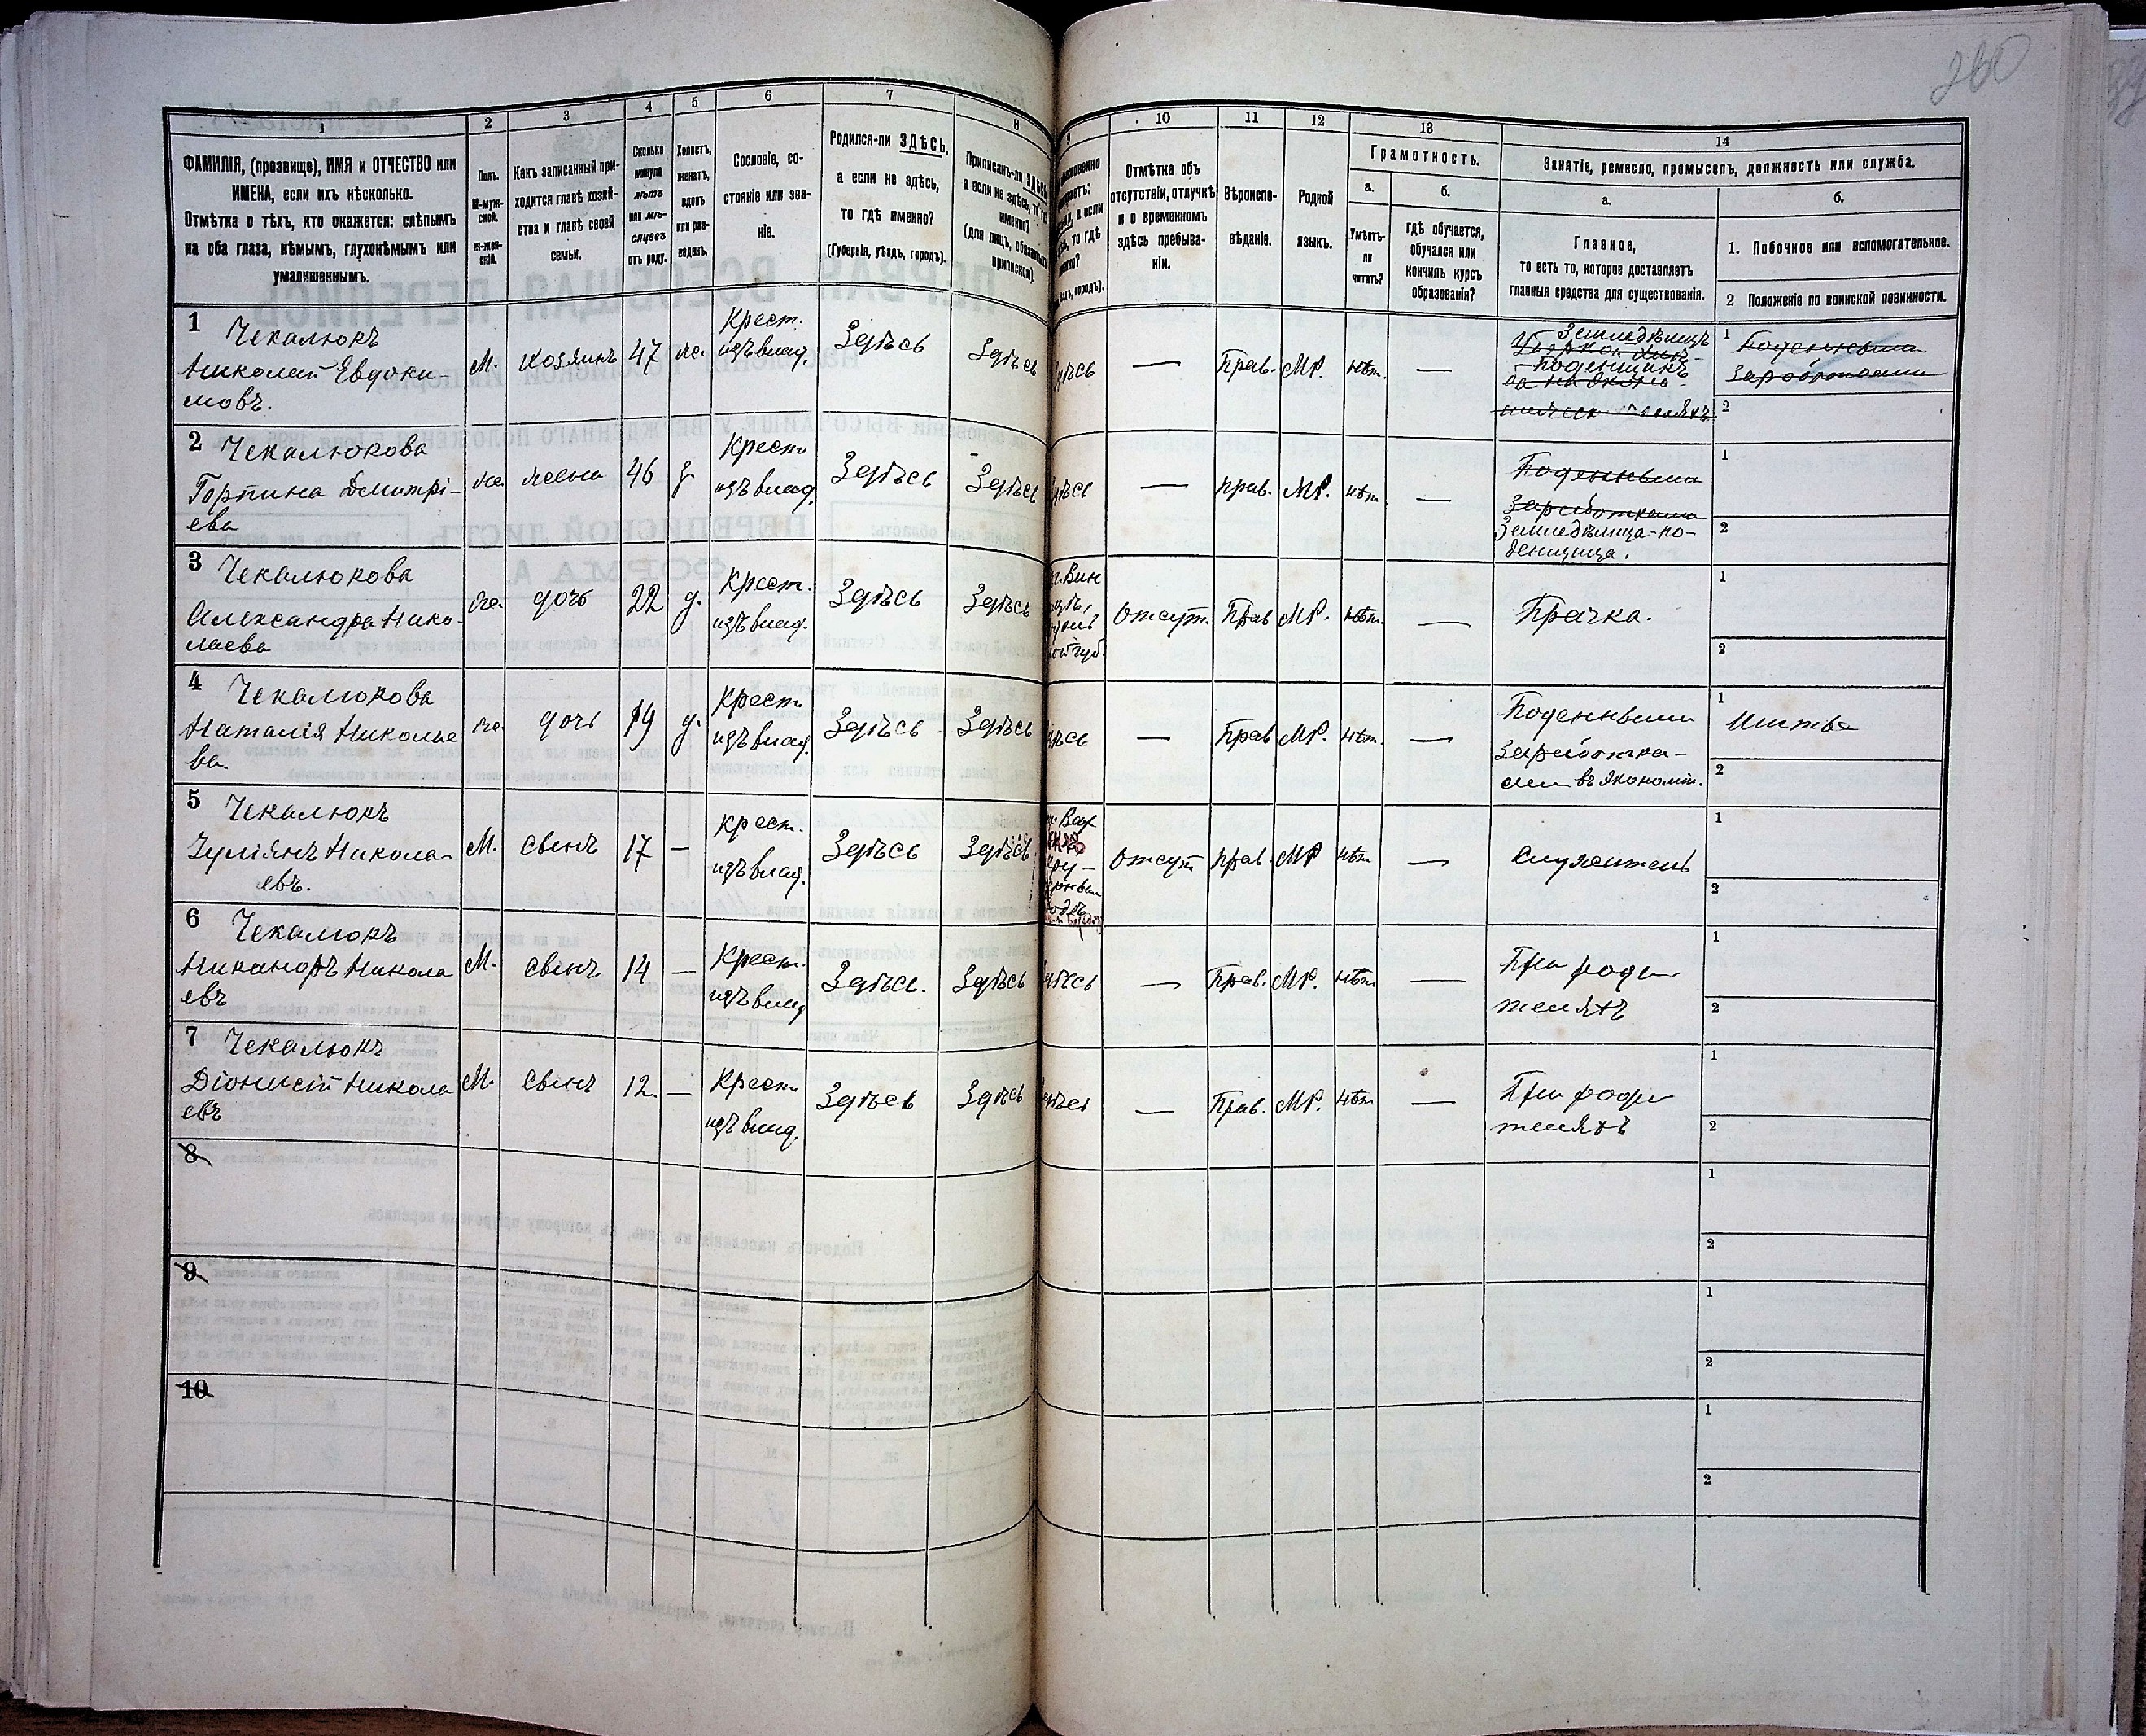 260
1
2
3
4
5
6
7
8
9
10
11
12
13
14
ФАМИЛІЯ, (прозвище), ИМЯ и ОТЧЕСТВО или
ИМЕНА, если ихъ нѣсколько.
Отмѣтка о тѣхъ, кто окажется: слѣпымъ
на оба глаза, нѣмымъ, глухонѣмымъ или
умалишеннымъ.
Полъ.
М-муж-
ской.
Ж-жен-
скій.
Какъ записанный при-
ходится главѣ хозяй-
ства и главѣ своей
семьи.
Сколько
минуло
лѣтъ
или мѣ-
сяцевъ
отъ роду.
Холостъ,
женатъ,
вдовъ
или раз-
веденъ.
Сословіе, со-
стояніе или зва-
ніе.
Родился-ли ЗДѢСЬ,
а если не здѣсь,
то гдѣ именно?
(Губернія, уѣздъ, городъ).
Приписанъ-ли
а если не здѣсь, то гдѣ
именно?
(для лицъ, обязанныхъ
припискою).
Отмѣтка объ
отсутствіи, отлучкѣ
и о временномъ
здѣсь пребыва-
ніи.
Вѣроиспо-
вѣданіе.
Родной
языкъ.
Грамотность.
а.
Умѣетъ-
ли
читать?
б.
гдѣ обучается,
обучался или
кончилъ курсъ
образованія?
Занятіе, ремесло, промыселъ, должность или служба.
а.
Главное,
то есть то, которое доставляетъ
главныя средства для существованія.
б.
1. Побочное или вспомогательное.
2 Положеніе по воинской повинности.
1 Чекалюкъ
Николай Евдоки-
мовъ.
М.
хозяинъ
47
же.
Крест.
изъ влад.
Здѣсь
Здѣсь
—
Прав.
МР.
нѣт.
—
Земледѣлецъ
Поденщикъ
1 Поденными
заработками
2
2 Чекалюкова
Горпина Дмитрі-
ева
же
жена
46
з.
Крест
изъ влад.
Здѣсь
Здѣсь
—
прав.
МР.
нѣт.
—
Поденными
заработками
Земледѣлица-по-
денщица.
1
2
3 Чекалюкова
Александра Нико-
лаева
же.
дочь
22
д.
Крест.
изъ влад.
Здѣсь
Здѣсь
Отсут.
Прав
МР.
нѣт.
—
Прачка.
1
2
4 Чекалюкова
Наталія Николае
ва.
же
дочь
19
д.
Крест
изъ влад.
Здѣсь
Здѣсь
—
Прав
МР.
нѣт.
—
Поденными
заработка-
ми въ экономіи.
1 Шитье
2
5 Чекалюкъ
Іуліянъ Никола-
евъ.
М.
сынъ
17
—
крест.
изъ влад.
Здѣсь
Здѣсь
Отсут
прав.
МР
нѣт
—
служитель
1
2
6 Чекалюкъ
Никаноръ Никола
евъ
М.
сынъ.
14
—
Крест.
изъ влад
Здѣсь.
Здѣсь
—
Прав.
МР.
нѣт
—
При роди-
теляхъ
1
2
7 Чекалюкъ
Діонисій Никола
евъ
М.
сынъ
12.
—
Крест
изъ влад.
Здѣсь
Здѣсь
—
Прав.
МР.
нѣт
—
При роди
теляхъ
1
2
8
1
2
9
1
2
10
1
2